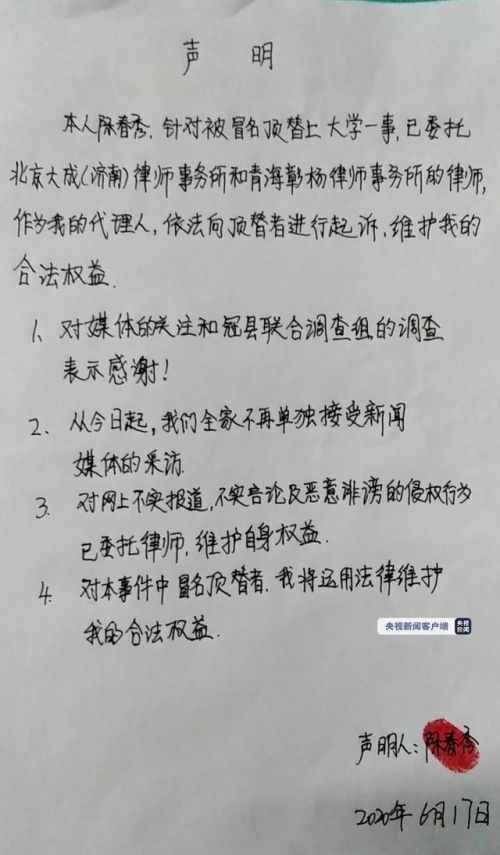 声 明
本人陈春秀,针对被冒名顶替上大学一事,已委托
北京大成(济南)律师事务所和青海彰杨律师事务所的律师,
作为我的代理人,依法向顶替者进行起诉,维护我的
合法权益.
1、对媒体的关注和冠县联合调查组的调查
表示感谢!
2、从今日起,我们全家不再单独接受新闻
媒体的采访.
3、对网上不实报道,不实言论及恶意诽谤的侵权行为
已委托律师,维护自身权益.
4、对本事件中冒名顶替者,我将运用法律维护
我的合法权益.
央视新闻客户端 央视新闻
声明人:陈春秀
2020年6月17日